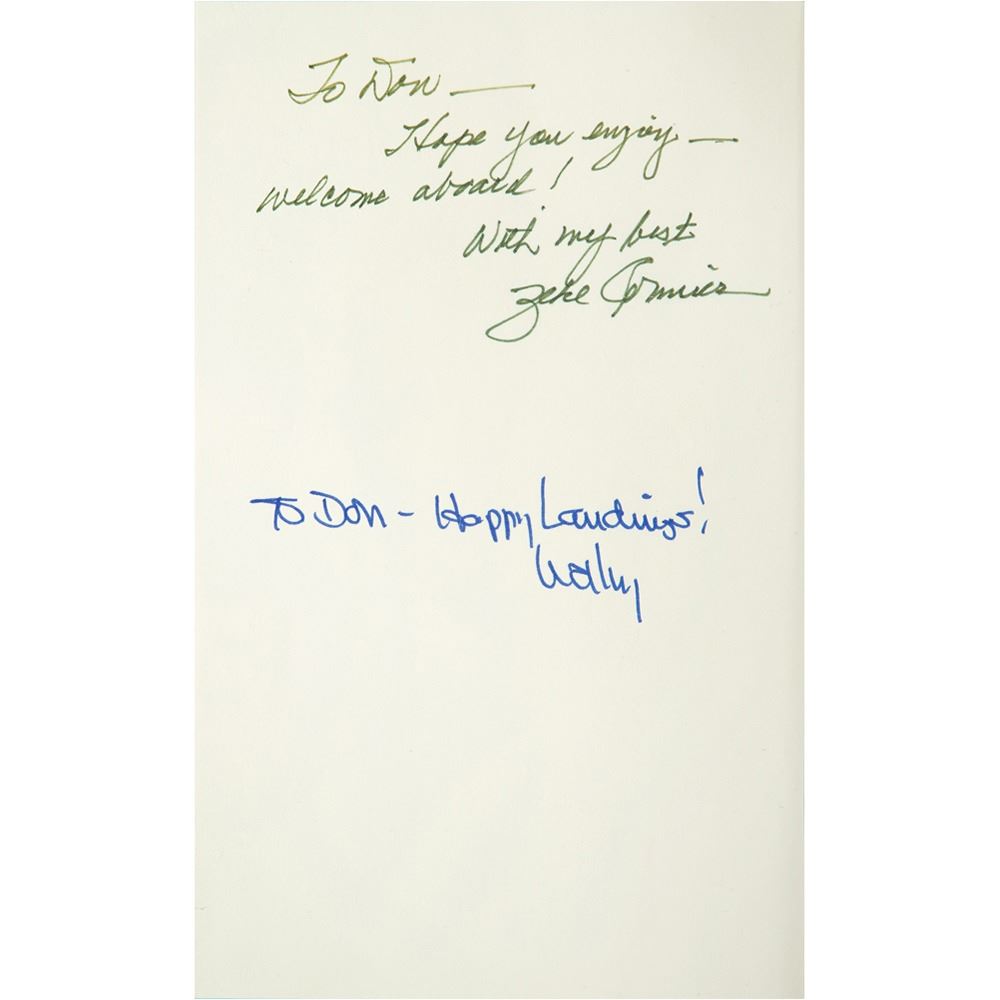 To Don —
Hope you enjoy —
welcome aboard!
With my best
Zeke Cormier
To Don - Happy Landings!
Wally